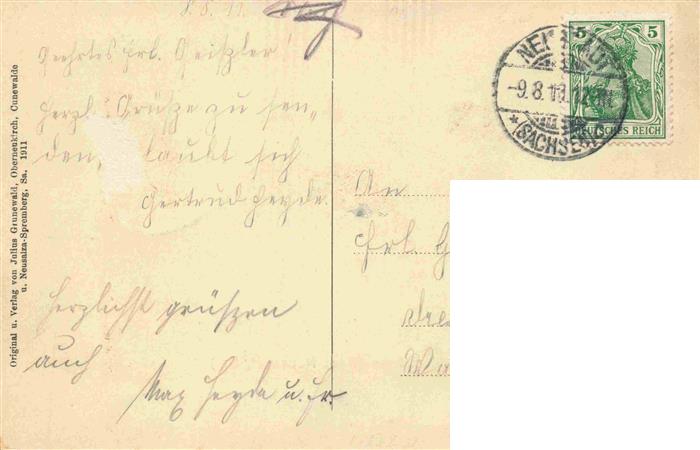 8.8.11.
Geehrtes Frl. Geißler!
Herzl. Grüße zu sen-
den, laubt sich
Gertrud Heyde.
Herzlichst grüßen
auch
Max Heyde u. Fr.
Original u. Verlag von Julius Grunewald, Oberneukirch, Cunewalde
u. Neusalza-Spremberg, Sa. 1911
NEUSTADT
SACHSEN
5 5
DEUTSCHES REICH
An
Frl. G